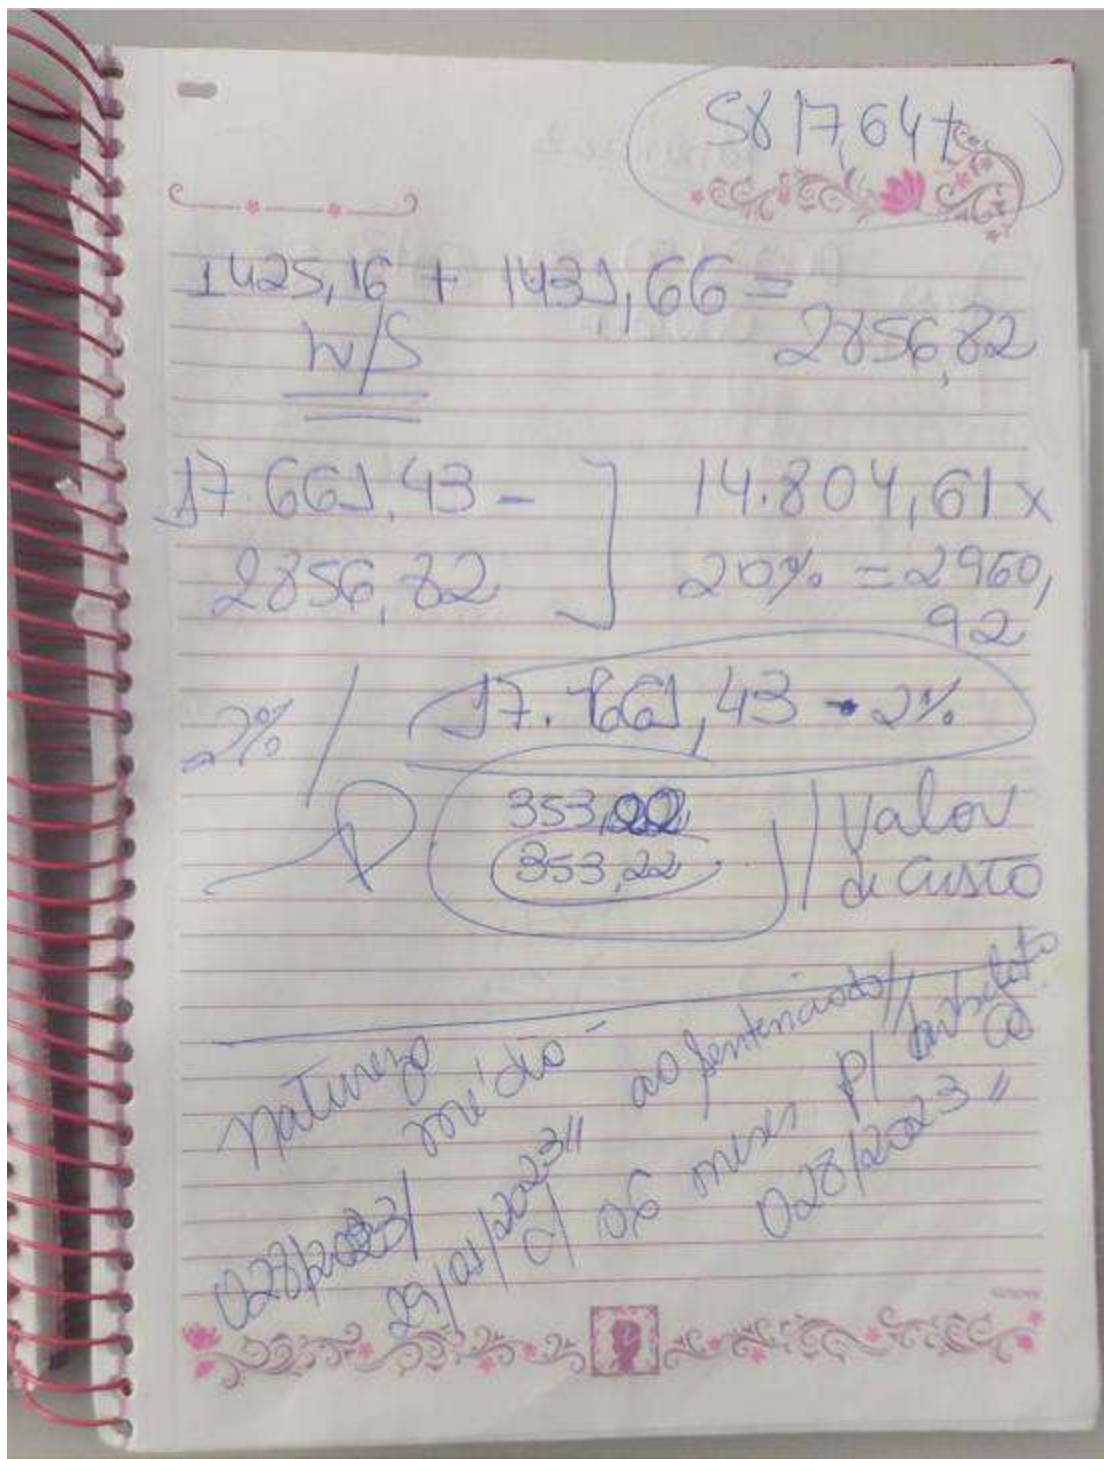 5817,64+
1425,16 + 1431,66 =
2856,82
W/S
17.661,43 -
2856,82
14.804,61 x
20% = 2960,
92
2%
17.661,43 - 2%
353,22
353,22
Valor
de custo
natureza
média - ao sentenciado//
028/2023/
29/01/2023//
c/ 06 meses p/
028/2023//